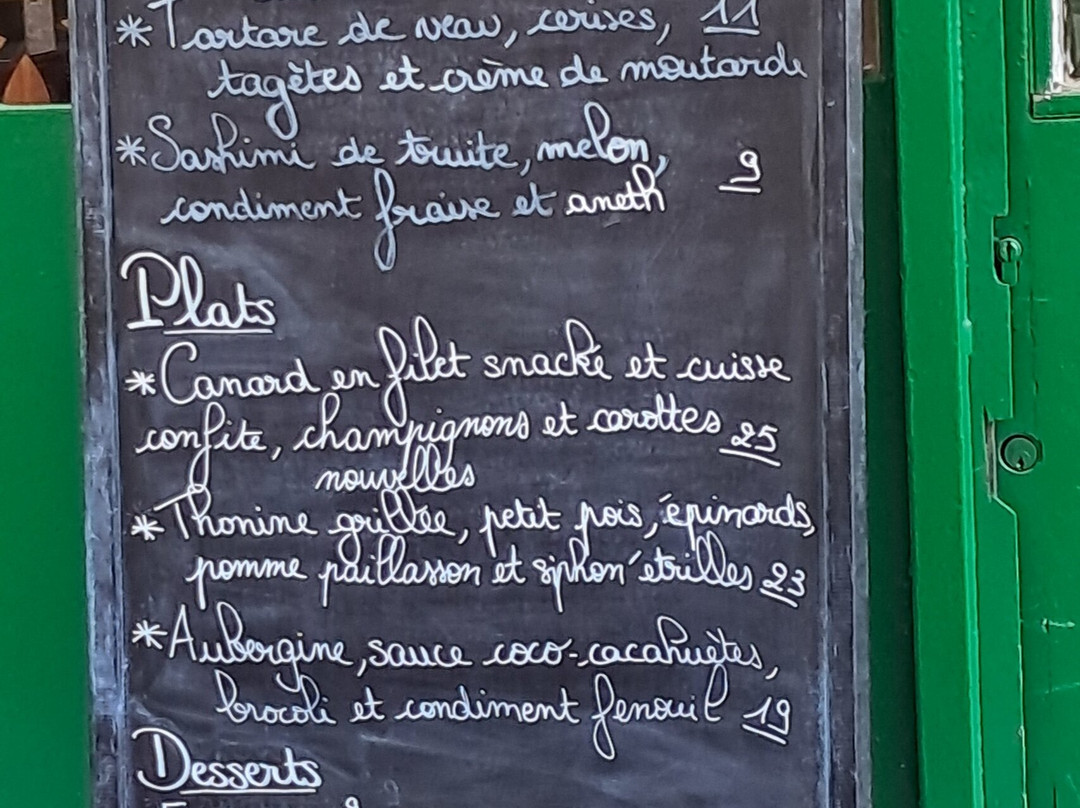 * Tartare de veau, cerises, 11
tagètes et crème de moutarde
* Sashimi de truite, melon,
condiment fraise et aneth 9
Plats
* Canard en filet snacké et cuisse
confite, champignons et carottes 25
nouvelles
* Thonine grillée, petit pois, épinards,
pomme paillasson et siphon étrilles 23
* Aubergine, sauce coco-cacahuètes,
brocoli et condiment fenouil 19
Desserts